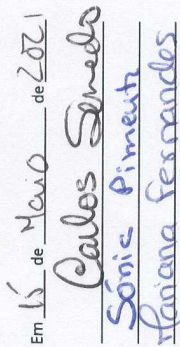 Em 15 de Maio de 2021
Carlos Semedo
Sónia Pimenta
Mariana Fernandes